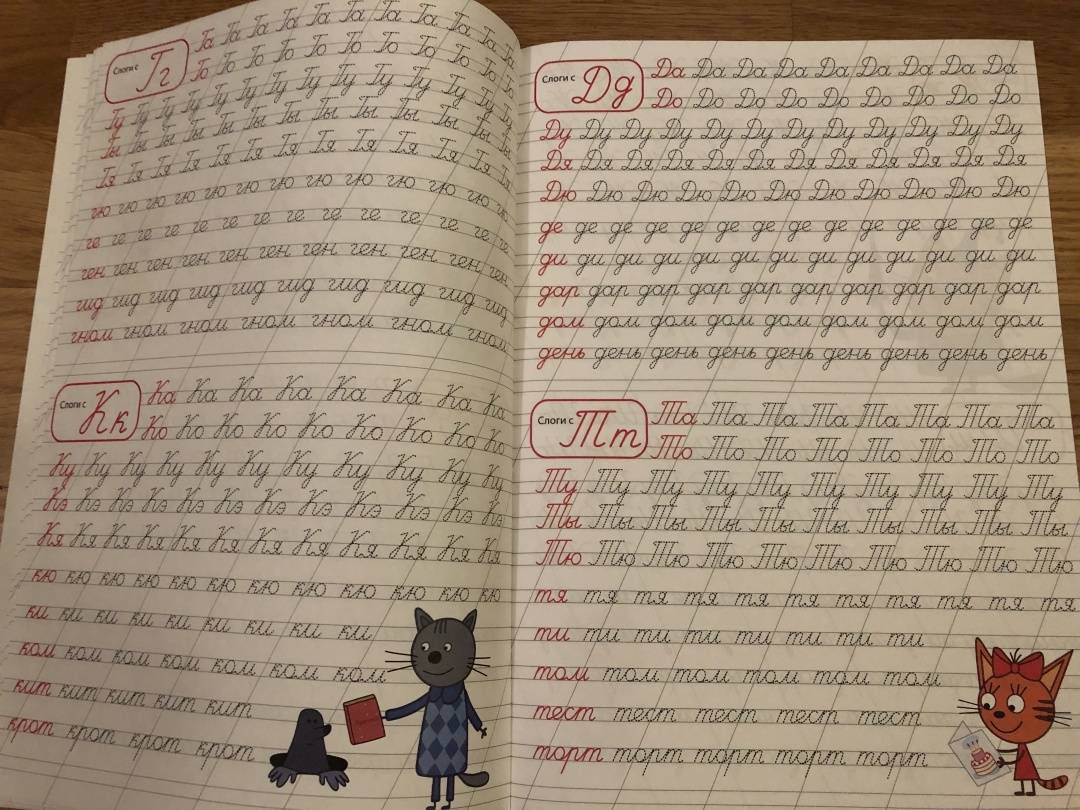 Слоги с Гг
Га Га Га Га Га Га Га Га Га Га Га
Го Го Го Го Го Го Го Го Го Го Го
Гу Гу Гу Гу Гу Гу Гу Гу Гу Гу Гу Гу Гу Гу
Гы Гы Гы Гы Гы Гы Гы Гы Гы Гы Гы Гы Гы
Гя Гя Гя Гя Гя Гя Гя Гя Гя Гя Гя Гя Гя
гю гю гю гю гю гю гю гю гю гю гю гю гю
ге ге ге ге ге ге ге ге ге ге ге ге ге ге
ген ген ген ген ген ген ген ген ген ген ген
гид гид гид гид гид гид гид гид гид гид
гном гном гном гном гном гном гном
Слоги с Кк
Ка Ка Ка Ка Ка Ка Ка Ка
Ко Ко Ко Ко Ко Ко Ко Ко Ко
Ку Ку Ку Ку Ку Ку Ку Ку Ку Ку Ку
Кэ Кэ Кэ Кэ Кэ Кэ Кэ Кэ Кэ Кэ Кэ Кэ
Кя Кя Кя Кя Кя Кя Кя Кя Кя Кя Кя Кя
кю кю кю кю кю кю кю кю кю кю кю кю
ки ки ки ки ки ки ки ки ки
ком ком ком ком ком ком ком
кит кит кит кит кит
крот крот крот крот
Слоги с Дд
Да Да Да Да Да Да Да Да Да
До До До До До До До До До
Ду Ду Ду Ду Ду Ду Ду Ду Ду Ду Ду Ду
Дя Дя Дя Дя Дя Дя Дя Дя Дя Дя Дя Дя
Дю Дю Дю Дю Дю Дю Дю Дю Дю Дю Дю
де де де де де де де де де де де де де де
ди ди ди ди ди ди ди ди ди ди ди ди ди
дар дар дар дар дар дар дар дар дар дар
дом дом дом дом дом дом дом дом дом
день день день день день день день день день
Слоги с Тт
Та Та Та Та Та Та Та Та
То То То То То То То То
Ту Ту Ту Ту Ту Ту Ту Ту Ту Ту
Ты Ты Ты Ты Ты Ты Ты Ты Ты Ты
Тю Тю Тю Тю Тю Тю Тю Тю Тю Тю
тя тя тя тя тя тя тя тя тя тя тя
ти ти ти ти ти ти ти ти
том том том том том том
тест тест тест тест тест
торт торт торт торт торт